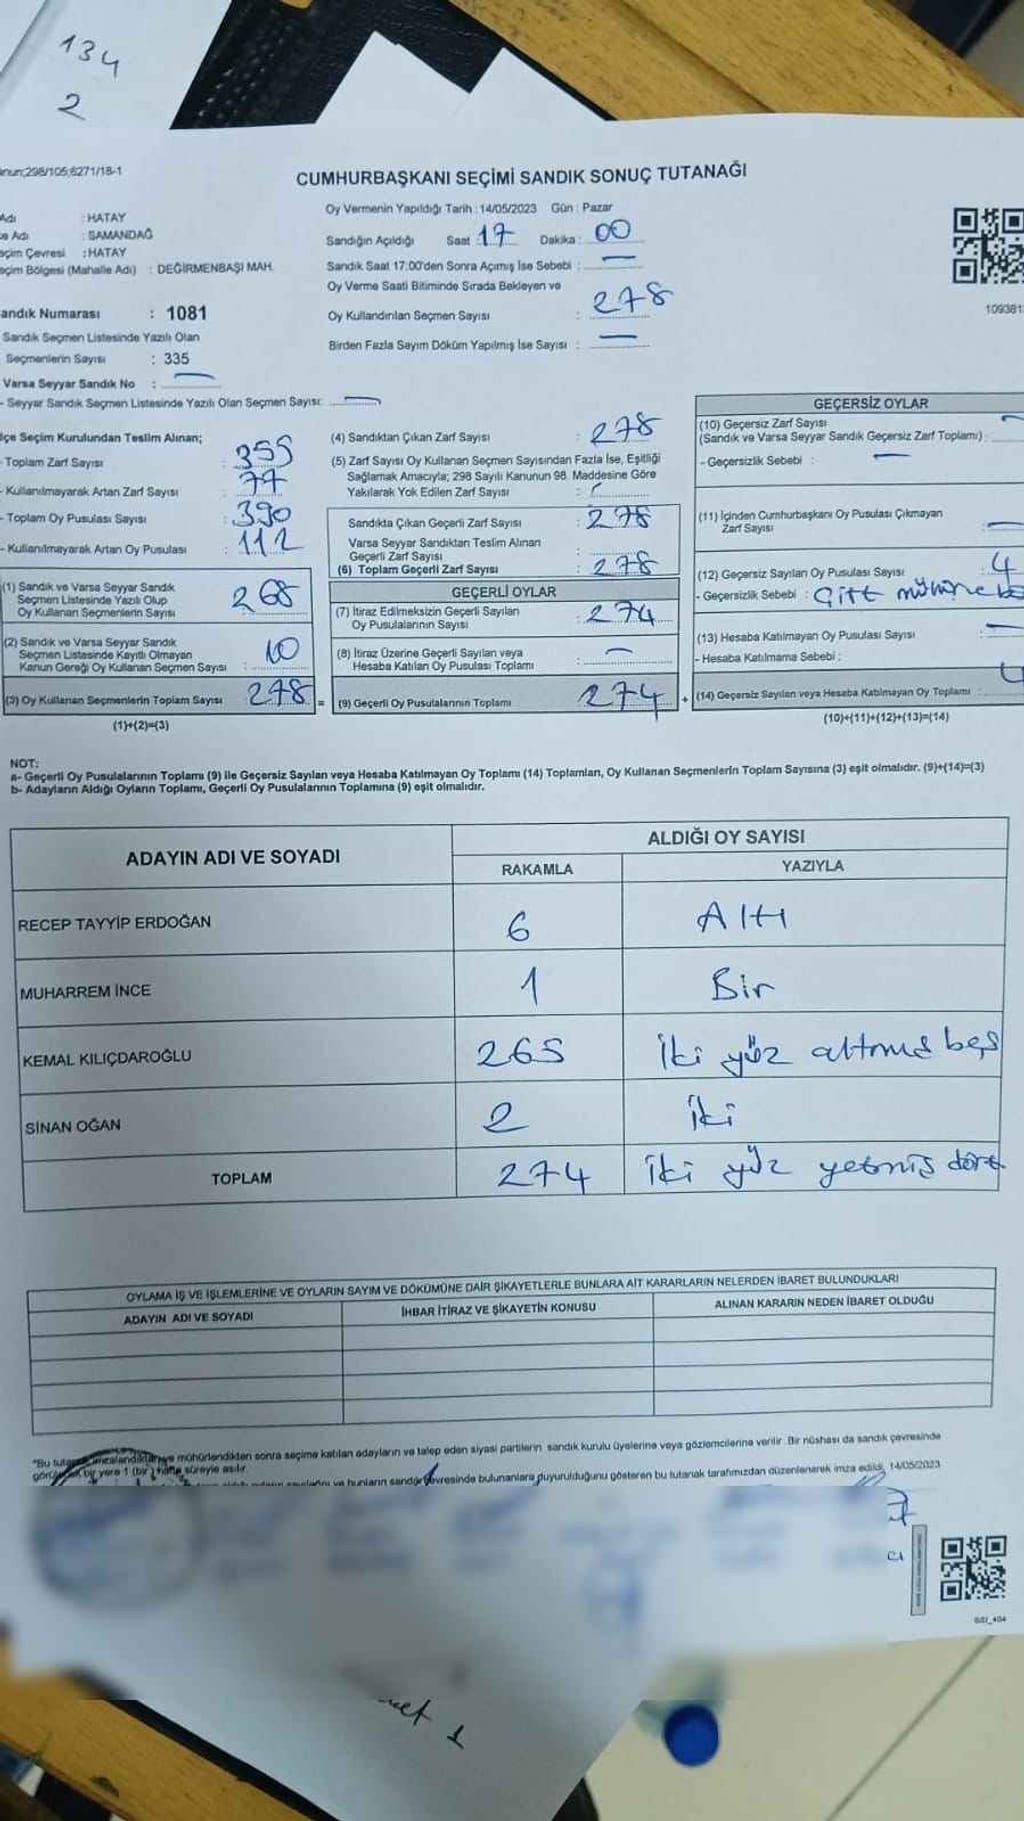 134
2
anun;298/105;6271/18-1
CUMHURBAŞKANI SEÇİMİ SANDIK SONUÇ TUTANAĞI
Adı : HATAY
e Adı : SAMANDAĞ
eçim Çevresi : HATAY
eçim Bölgesi (Mahalle Adı) : DEĞİRMENBAŞI MAH.
Oy Vermenin Yapıldığı Tarih : 14/05/2023 Gün : Pazar
Sandığın Açıldığı Saat 17 Dakika : 00
Sandık Saat 17:00'den Sonra Açımış İse Sebebi : —
Oy Verme Saati Bitiminde Sırada Bekleyen ve
Oy Kullandırılan Seçmen Sayısı : 278
Birden Fazla Sayım Döküm Yapılmış İse Sayısı : —
109381
andık Numarası : 1081
Sandık Seçmen Listesinde Yazılı Olan
Seçmenlerin Sayısı : 335
Varsa Seyyar Sandık No : —
- Seyyar Sandık Seçmen Listesinde Yazılı Olan Seçmen Sayısı: —
lçe Seçim Kurulundan Teslim Alınan;
Toplam Zarf Sayısı : 355
- Kullanılmayarak Artan Zarf Sayısı : 77
- Toplam Oy Pusulası Sayısı : 390
- Kullanılmayarak Artan Oy Pusulası : 112
(1) Sandık ve Varsa Seyyar Sandık
Seçmen Listesinde Yazılı Olup
Oy Kullanan Seçmenlerin Sayısı : 268
(2) Sandık ve Varsa Seyyar Sandık
Seçmen Listesinde Kayıtlı Olmayan
Kanun Gereği Oy Kullanan Seçmen Sayısı : 10
(3) Oy Kullanan Seçmenlerin Toplam Sayısı 278 =
(1)+(2)=(3)
(4) Sandıktan Çıkan Zarf Sayısı : 278
(5) Zarf Sayısı Oy Kullanan Seçmen Sayısından Fazla İse, Eşitliği
Sağlamak Amacıyla; 298 Sayılı Kanunun 98. Maddesine Göre
Yakılarak Yok Edilen Zarf Sayısı :
Sandıkta Çıkan Geçerli Zarf Sayısı : 278
Varsa Seyyar Sandıktan Teslim Alınan
Geçerli Zarf Sayısı :
(6) Toplam Geçerli Zarf Sayısı : 278
GEÇERLİ OYLAR
(7) İtiraz Edilmeksizin Geçerli Sayılan
Oy Pusulalarının Sayısı : 274
(8) İtiraz Üzerine Geçerli Sayılan veya
Hesaba Katılan Oy Pusulası Toplamı : —
(9) Geçerli Oy Pusulalarının Toplamı 274 +
GEÇERSİZ OYLAR
(10) Geçersiz Zarf Sayısı
(Sandık ve Varsa Seyyar Sandık Geçersiz Zarf Toplamı) : —
- Geçersizlik Sebebi : —
(11) İçinden Cumhurbaşkanı Oy Pusulası Çıkmayan
Zarf Sayısı : —
(12) Geçersiz Sayılan Oy Pusulası Sayısı : 4
- Geçersizlik Sebebi : Çift
(13) Hesaba Katılmayan Oy Pusulası Sayısı : —
- Hesaba Katılmama Sebebi :
(14) Geçersiz Sayılan veya Hesaba Katılmayan Oy Toplamı : 4
(10)+(11)+(12)+(13)=(14)
NOT:
a- Geçerli Oy Pusulalarının Toplamı (9) ile Geçersiz Sayılan veya Hesaba Katılmayan Oy Toplamı (14) Toplamları, Oy Kullanan Seçmenlerin Toplam Sayısına (3) eşit olmalıdır. (9)+(14)=(3)
b- Adayların Aldığı Oyların Toplamı, Geçerli Oy Pusulalarının Toplamına (9) eşit olmalıdır.
ADAYIN ADI VE SOYADI ALDIĞI OY SAYISI
RAKAMLA YAZIYLA
RECEP TAYYİP ERDOĞAN 6 Altı
MUHARREM İNCE 1 Bir
KEMAL KILIÇDAROĞLU 265 iki yüz altmış beş
SİNAN OĞAN 2 iki
TOPLAM 274 iki yüz yetmiş dört
OYLAMA İŞ VE İŞLEMLERİNE VE OYLARIN SAYIM VE DÖKÜMÜNE DAİR ŞİKAYETLERLE BUNLARA AİT KARARLARIN NELERDEN İBARET BULUNDUKLARI
ADAYIN ADI VE SOYADI İHBAR İTİRAZ VE ŞİKAYETİN KONUSU ALINAN KARARIN NEDEN İBARET OLDUĞU
*Bu mühürlendikten sonra seçime katılan adayların ve talep eden siyasi partilerin sandık kurulu üyelerine veya gözlemcilerine verilir. Bir nüshası da sandık çevresinde
bir yere 1 (bir) hafta süreyle asılır.
ve bunların sandık çevresinde bulunanlara duyurulduğunu gösteren bu tutanak tarafımızdan düzenlenerek imza edildi. 14/05/2023
1